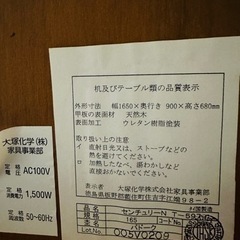 机及びテーブル類の品質表示
外形寸法 幅1650×奥行き 900×高さ680mm
甲板の表面材 天然木
表面加工 ウレタン樹脂塗装
取り扱い上の注意
イ 直射日光又は、ストーブなどの
熱を避けてください。
ロ 加熱したなべ、湯わかしなど
直接おかないでください。
表示者 大塚化学株式会社家具事業部
徳島県板野郡藍住町住吉字江端
センチュリーN
165
パドーク
Lot No. 005V0209
大塚化学(株)
家具事業部
定格電圧 AC100V
定格消費電力 1,500W
定格周波数 50~60Hz